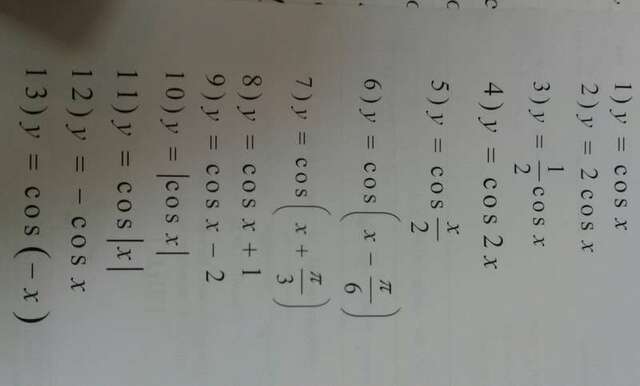 1) y = cos x
2) y = 2 cos x
3) y = \frac{1}{2} cos x
4) y = cos 2x
5) y = cos \frac{x}{2}
6) y = cos ( x − \frac{π}{6} )
7) y = cos ( x + \frac{π}{3} )
8) y = cos x + 1
9) y = cos x − 2
10) y = |cos x|
11) y = cos|x|
12) y = − cos x
13) y = cos(− x )